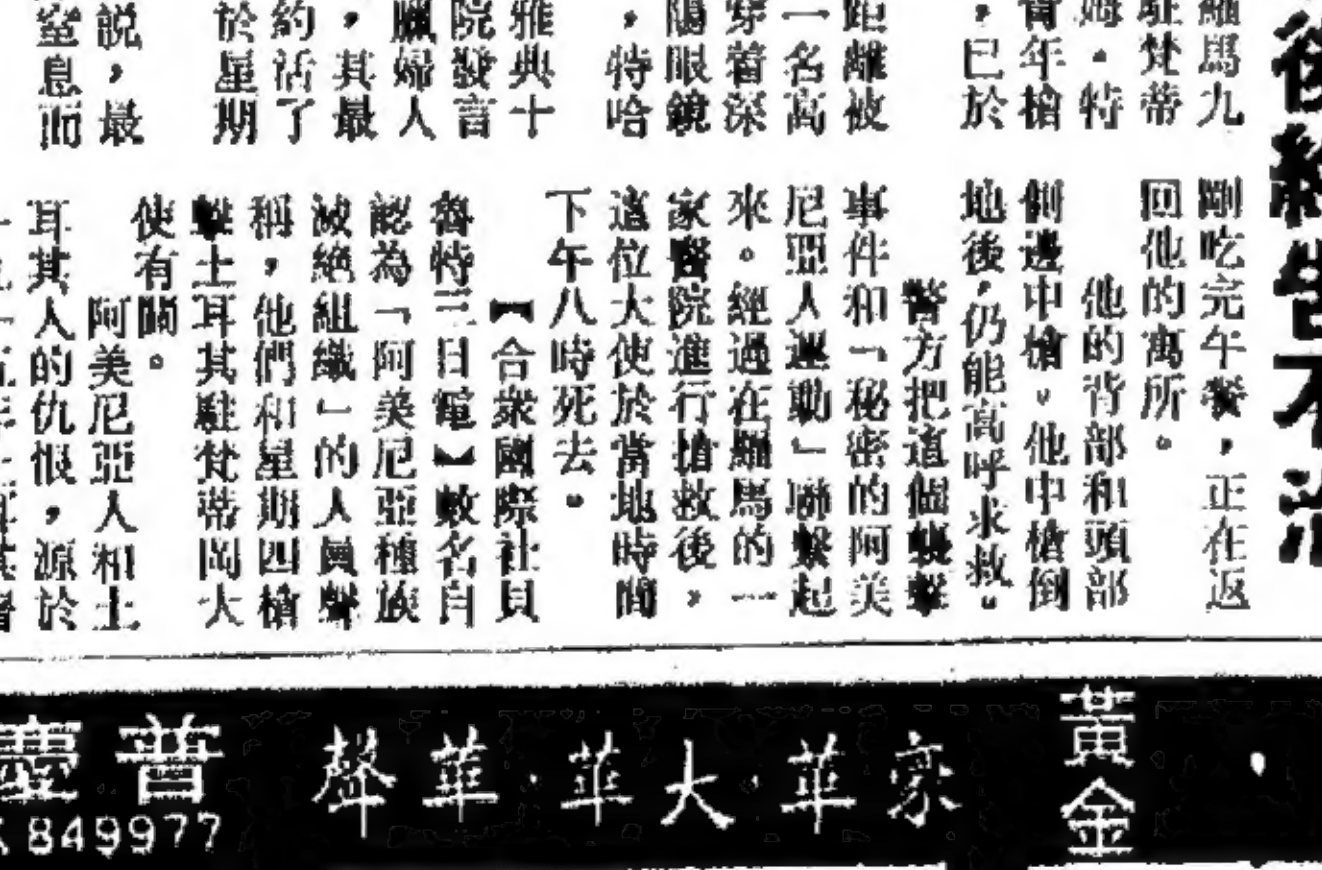 後經告不治
羅馬九
駐梵蒂
姆·特
青年槍
，已於
距離被
一名高
穿着深
陽眼鏡
，特哈
雅典十
院發言
臘婦人
，其最
約活了
於星期
說，最
窒息而
剛吃完午餐，正在返
回他的寓所。
他的背部和頭部
側邊中槍。他中槍倒
地後，仍能高呼求救。
警方把這個襲擊
事件和「秘密的阿美
尼亞人運動」聯繫起
來。經過在羅馬的一
家醫院進行搶救後，
這位大使於當地時間
下午八時死去。
【合衆國際社貝
魯特三日電】數名自
認為「阿美尼亞種族
被絕組織」的人員聲
稱，他們和星期四槍
擊土耳其駐梵蒂岡大
使有關。
阿美尼亞人和土
耳其人的仇恨，源於
黃金
豪華·大華·華聲
普慶
849977